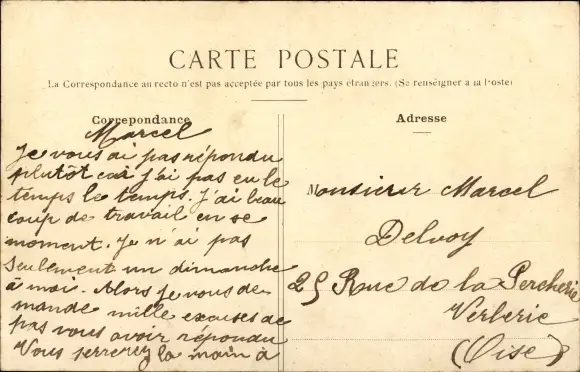 CARTE POSTALE
La Correspondance au recto n'est pas acceptée par tous les pays étrangers. (Se renseigner a la Poste)
Correpondance
Marcel
Je vous ai pas répondu
plutôt car j'ai pas eu le
temps le temps. J'ai beau
coup de travail en se
moment. Je n'ai pas
seulement un dimanche
à moi. Alors je vous de
mande mille excuses de
pas vous avoir répondu
Vous serrerez la main à
Adresse
Monsieur Marcel
Delvoy
25 Rue de la Percherie
Verberie
(Oise)